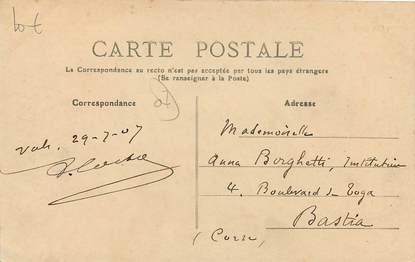 lot
CARTE POSTALE
La Correspondance au recto n'est pas acceptée par tous les pays étrangers
(Se renseigner à la Poste)
Correspondance
Adresse
29-7-07
Mademoiselle
Anna Borghetti, Institutrice
4. Boulevard du Toga
Bastia
(Corse)